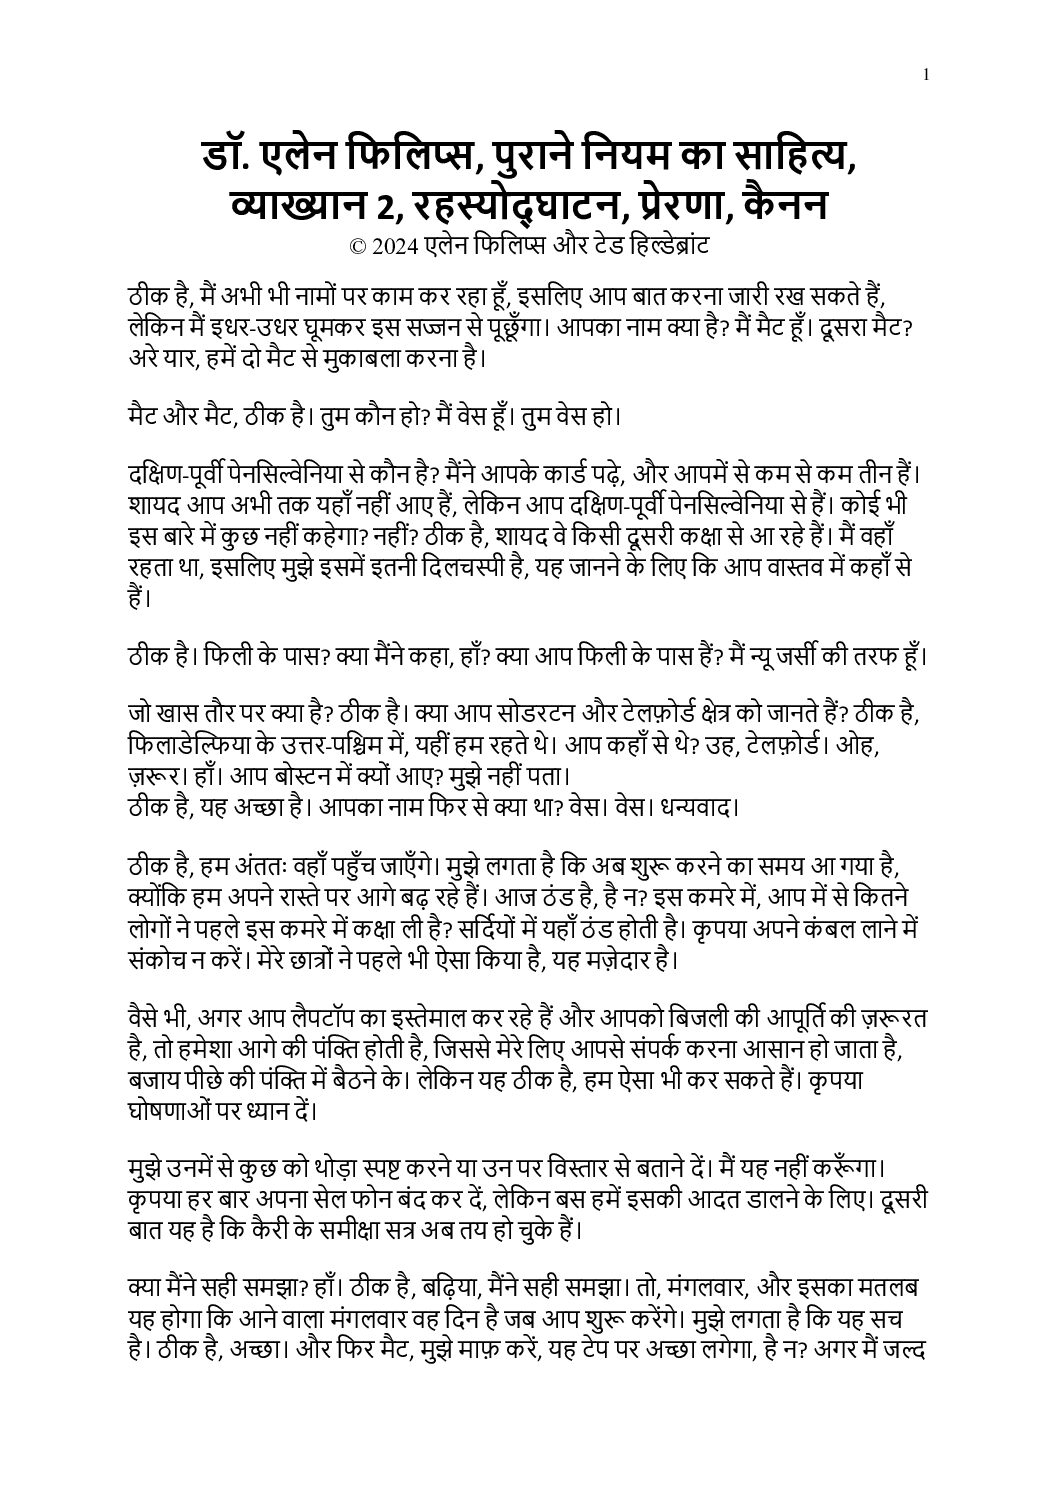 1
डॉ. एलेन फिलिप्स, पुराने नियम का साहित्य,
व्याख्यान 2, रहस्योद्घाटन, प्रेरणा, कैनन
© 2024 एलेन फिलिप्स और टेड हिल्डेब्रांट
ठीक है, मैं अभी भी नामों पर काम कर रहा हूँ, इसलिए आप बात करना जारी रख सकते हैं,
लेकिन मैं इधर-उधर घूमकर इस सज्जन से पूछूँगा। आपका नाम क्या है? मैं मैट हूँ। दूसरा मैट?
अरे यार, हमें दो मैट से मुकाबला करना है।
मैट और मैट, ठीक है। तुम कौन हो? मैं वेस हूँ। तुम वेस हो।
दक्षिण-पूर्वी पेनसिल्वेनिया से कौन है? मैंने आपके कार्ड पढ़े, और आपमें से कम से कम तीन हैं।
शायद आप अभी तक यहाँ नहीं आए हैं, लेकिन आप दक्षिण-पूर्वी पेनसिल्वेनिया से हैं। कोई भी
इस बारे में कुछ नहीं कहेगा? नहीं? ठीक है, शायद वे किसी दूसरी कक्षा से आ रहे हैं। मैं वहाँ
रहता था, इसलिए मुझे इसमें इतनी दिलचस्पी है, यह जानने के लिए कि आप वास्तव में कहाँ से
हैं।
ठीक है। फिली के पास? क्या मैंने कहा, हाँ? क्या आप फिली के पास हैं? मैं न्यू जर्सी की तरफ हूँ।
जो खास तौर पर क्या है? ठीक है। क्या आप सोडरटन और टेलफ़ोर्ड क्षेत्र को जानते हैं? ठीक है,
फिलाडेल्फिया के उत्तर-पश्चिम में, यहीं हम रहते थे। आप कहाँ से थे? उह, टेलफ़ोर्ड। ओह,
ज़रूर। हाँ। आप बोस्टन में क्यों आए? मुझे नहीं पता।
ठीक है, यह अच्छा है। आपका नाम फिर से क्या था? वेस। वेस। धन्यवाद।
ठीक है, हम अंततः वहाँ पहुँच जाएँगे। मुझे लगता है कि अब शुरू करने का समय आ गया है,
क्योंकि हम अपने रास्ते पर आगे बढ़ रहे हैं। आज ठंड है, है न? इस कमरे में, आप में से कितने
लोगों ने पहले इस कमरे में कक्षा ली है? सर्दियों में यहाँ ठंड होती है। कृपया अपने कंबल लाने में
संकोच न करें। मेरे छात्रों ने पहले भी ऐसा किया है, यह मज़ेदार है।
वैसे भी, अगर आप लैपटॉप का इस्तेमाल कर रहे हैं और आपको बिजली की आपूर्ति की ज़रूरत
है, तो हमेशा आगे की पंक्ति होती है, जिससे मेरे लिए आपसे संपर्क करना आसान हो जाता है,
बजाय पीछे की पंक्ति में बैठने के। लेकिन यह ठीक है, हम ऐसा भी कर सकते हैं। कृपया
घोषणाओं पर ध्यान दें।
मुझे उनमें से कुछ को थोड़ा स्पष्ट करने या उन पर विस्तार से बताने दें। मैं यह नहीं करूँगा।
कृपया हर बार अपना सेल फोन बंद कर दें, लेकिन बस हमें इसकी आदत डालने के लिए। दूसरी
बात यह है कि कैरी के समीक्षा सत्र अब तय हो चुके हैं।
क्या मैंने सही समझा? हाँ। ठीक है, बढ़िया, मैंने सही समझा। तो, मंगलवार, और इसका मतलब
यह होगा कि आने वाला मंगलवार वह दिन है जब आप शुरू करेंगे। मुझे लगता है कि यह सच
है। ठीक है, अच्छा। और फिर मैट, मुझे माफ़ करें, यह टेप पर अच्छा लगेगा, है न? अगर मैं जल्द